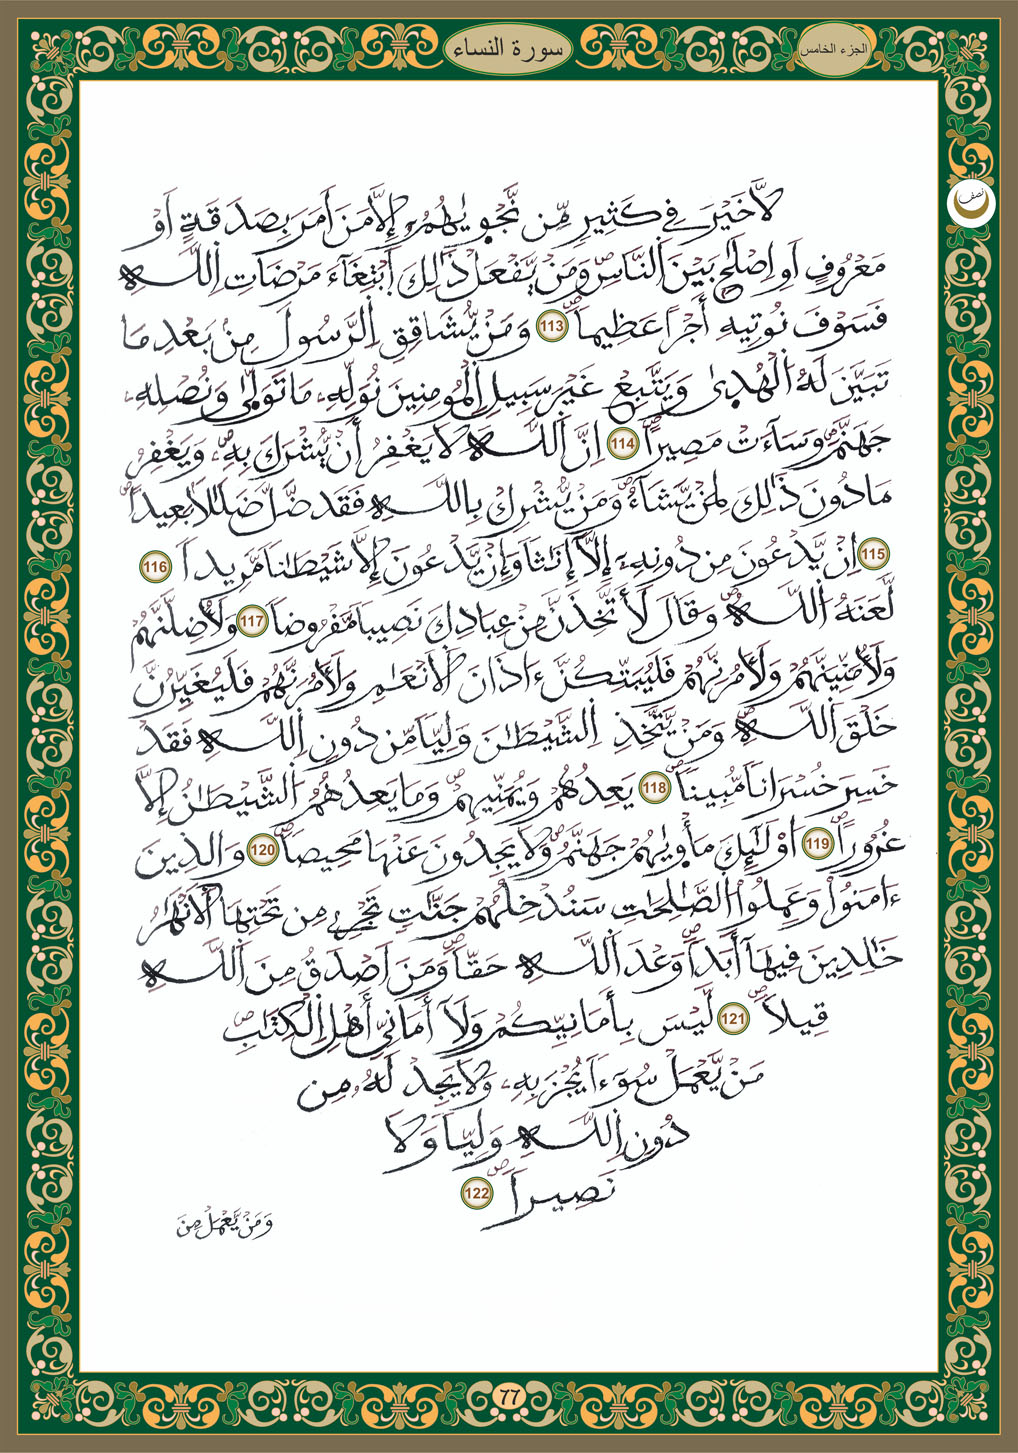 سورة النساء
الجزء الخامس
نصف
لَّا خَيْرَ فِے كَثِيرٍ مِّن نَّجْوٜيٰهُمُۥٓ إِلَّا مَنَ اَمَرَ بِصَدَقَةٍ اَوْ
مَعْرُوفٍ اَوِ اِصْلَٰحٍۢ بَيْنَ اَ۬لنَّاسِۖ وَمَنْ يَّفْعَلْ ذَٰلِكَ اَ۪بْتِغَآءَ مَرْضَاتِ اِ۬للَّهِ
فَسَوْفَ نُوتِيهِ أَجْراً عَظِيماٗۖ 113 وَمَنْ يُّشَاقِقِ اِ۬لرَّسُولَ مِنۢ بَعْدِ مَا
تَبَيَّنَ لَهُ اُ۬لْهُد۪يٰ وَيَتَّبِعْ غَيْرَ سَبِيلِ اِ۬لْمُومِنِينَ نُوَلِّهِۦ مَا تَوَلّ۪يٰ وَنُصْلِهِۦ
جَهَنَّمَۖ وَسَآءَتْ مَصِيراًۖ 114 اِنَّ اَ۬للَّهَ لَا يَغْفِرُ أَنْ يُّشْرَكَ بِهِۦۖ وَيَغْفِرُ
مَا دُونَ ذَٰلِكَ لِمَنْ يَّشَآءُۖ وَمَنْ يُّشْرِكْ بِاللَّهِ فَقَد ضَّلَّ ضَلَٰلاَۢ بَعِيداًۖ
115 اِنْ يَّدْعُونَ مِن دُونِهِۦٓ إِلَّآ إِنَٰثاٗ وَإِنْ يَّدْعُونَ إِلَّا شَيْطَٰناٗ مَّرِيداٗ 116
لَّعَنَهُ اُ۬للَّهُۖ وَقَالَ لَأَتَّخِذَنَّ مِنْ عِبَادِكَ نَصِيباٗ مَّفْرُوضاٗ 117 وَلَأُضِلَّنَّهُمْ
وَلَأُمَنِّيَنَّهُمْ وَلَأٓمُرَنَّهُمْ فَلَيُبَتِّكُنَّ ءَاذَانَ اَ۬لْأَنْعَٰمِ وَلَأٓمُرَنَّهُمْ فَلَيُغَيِّرُنَّ
خَلْقَ اَ۬للَّهِۖ وَمَنْ يَّتَّخِذِ اِ۬لشَّيْطَٰنَ وَلِيّاٗ مِّن دُونِ اِ۬للَّهِ فَقَدْ
خَسِرَ خُسْرَاناٗ مُّبِيناٗۖ 118 يَعِدُهُمْ وَيُمَنِّيهِمْۖ وَمَا يَعِدُهُمُ اُ۬لشَّيْطَٰنُ إِلَّا
غُرُوراًۖ 119 اُوْلَٰٓئِكَ مَأْو۪يٰهُمْ جَهَنَّمُۖ وَلَا يَجِدُونَ عَنْهَا مَحِيصاٗۖ 120 وَالذِينَ
ءَامَنُواْ وَعَمِلُواْ اُ۬لصَّٰلِحَٰتِ سَنُدْخِلُهُمْ جَنَّٰتٖ تَجْرِے مِن تَحْتِهَا اَ۬لْأَنْهَٰرُ
خَٰلِدِينَ فِيهَآ أَبَداٗۖ وَعْدَ اَ۬للَّهِ حَقّاٗۖ وَمَنَ اَصْدَقُ مِنَ اَ۬للَّهِ
قِيلاٗۖ 121 لَّيْسَ بِأَمَانِيِّكُمْ وَلَآ أَمَانِيِّ أَهْلِ اِ۬لْكِتَٰبِۖ
مَنْ يَّعْمَلْ سُوٓءاٗ يُجْزَ بِهِۦ وَلَا يَجِدْ لَهُۥ مِن
دُونِ اِ۬للَّهِ وَلِيّاٗ وَلَا
نَصِيراٗۖ 122
وَمَنْ يَّعْمَلْ مِنَ
٧٧